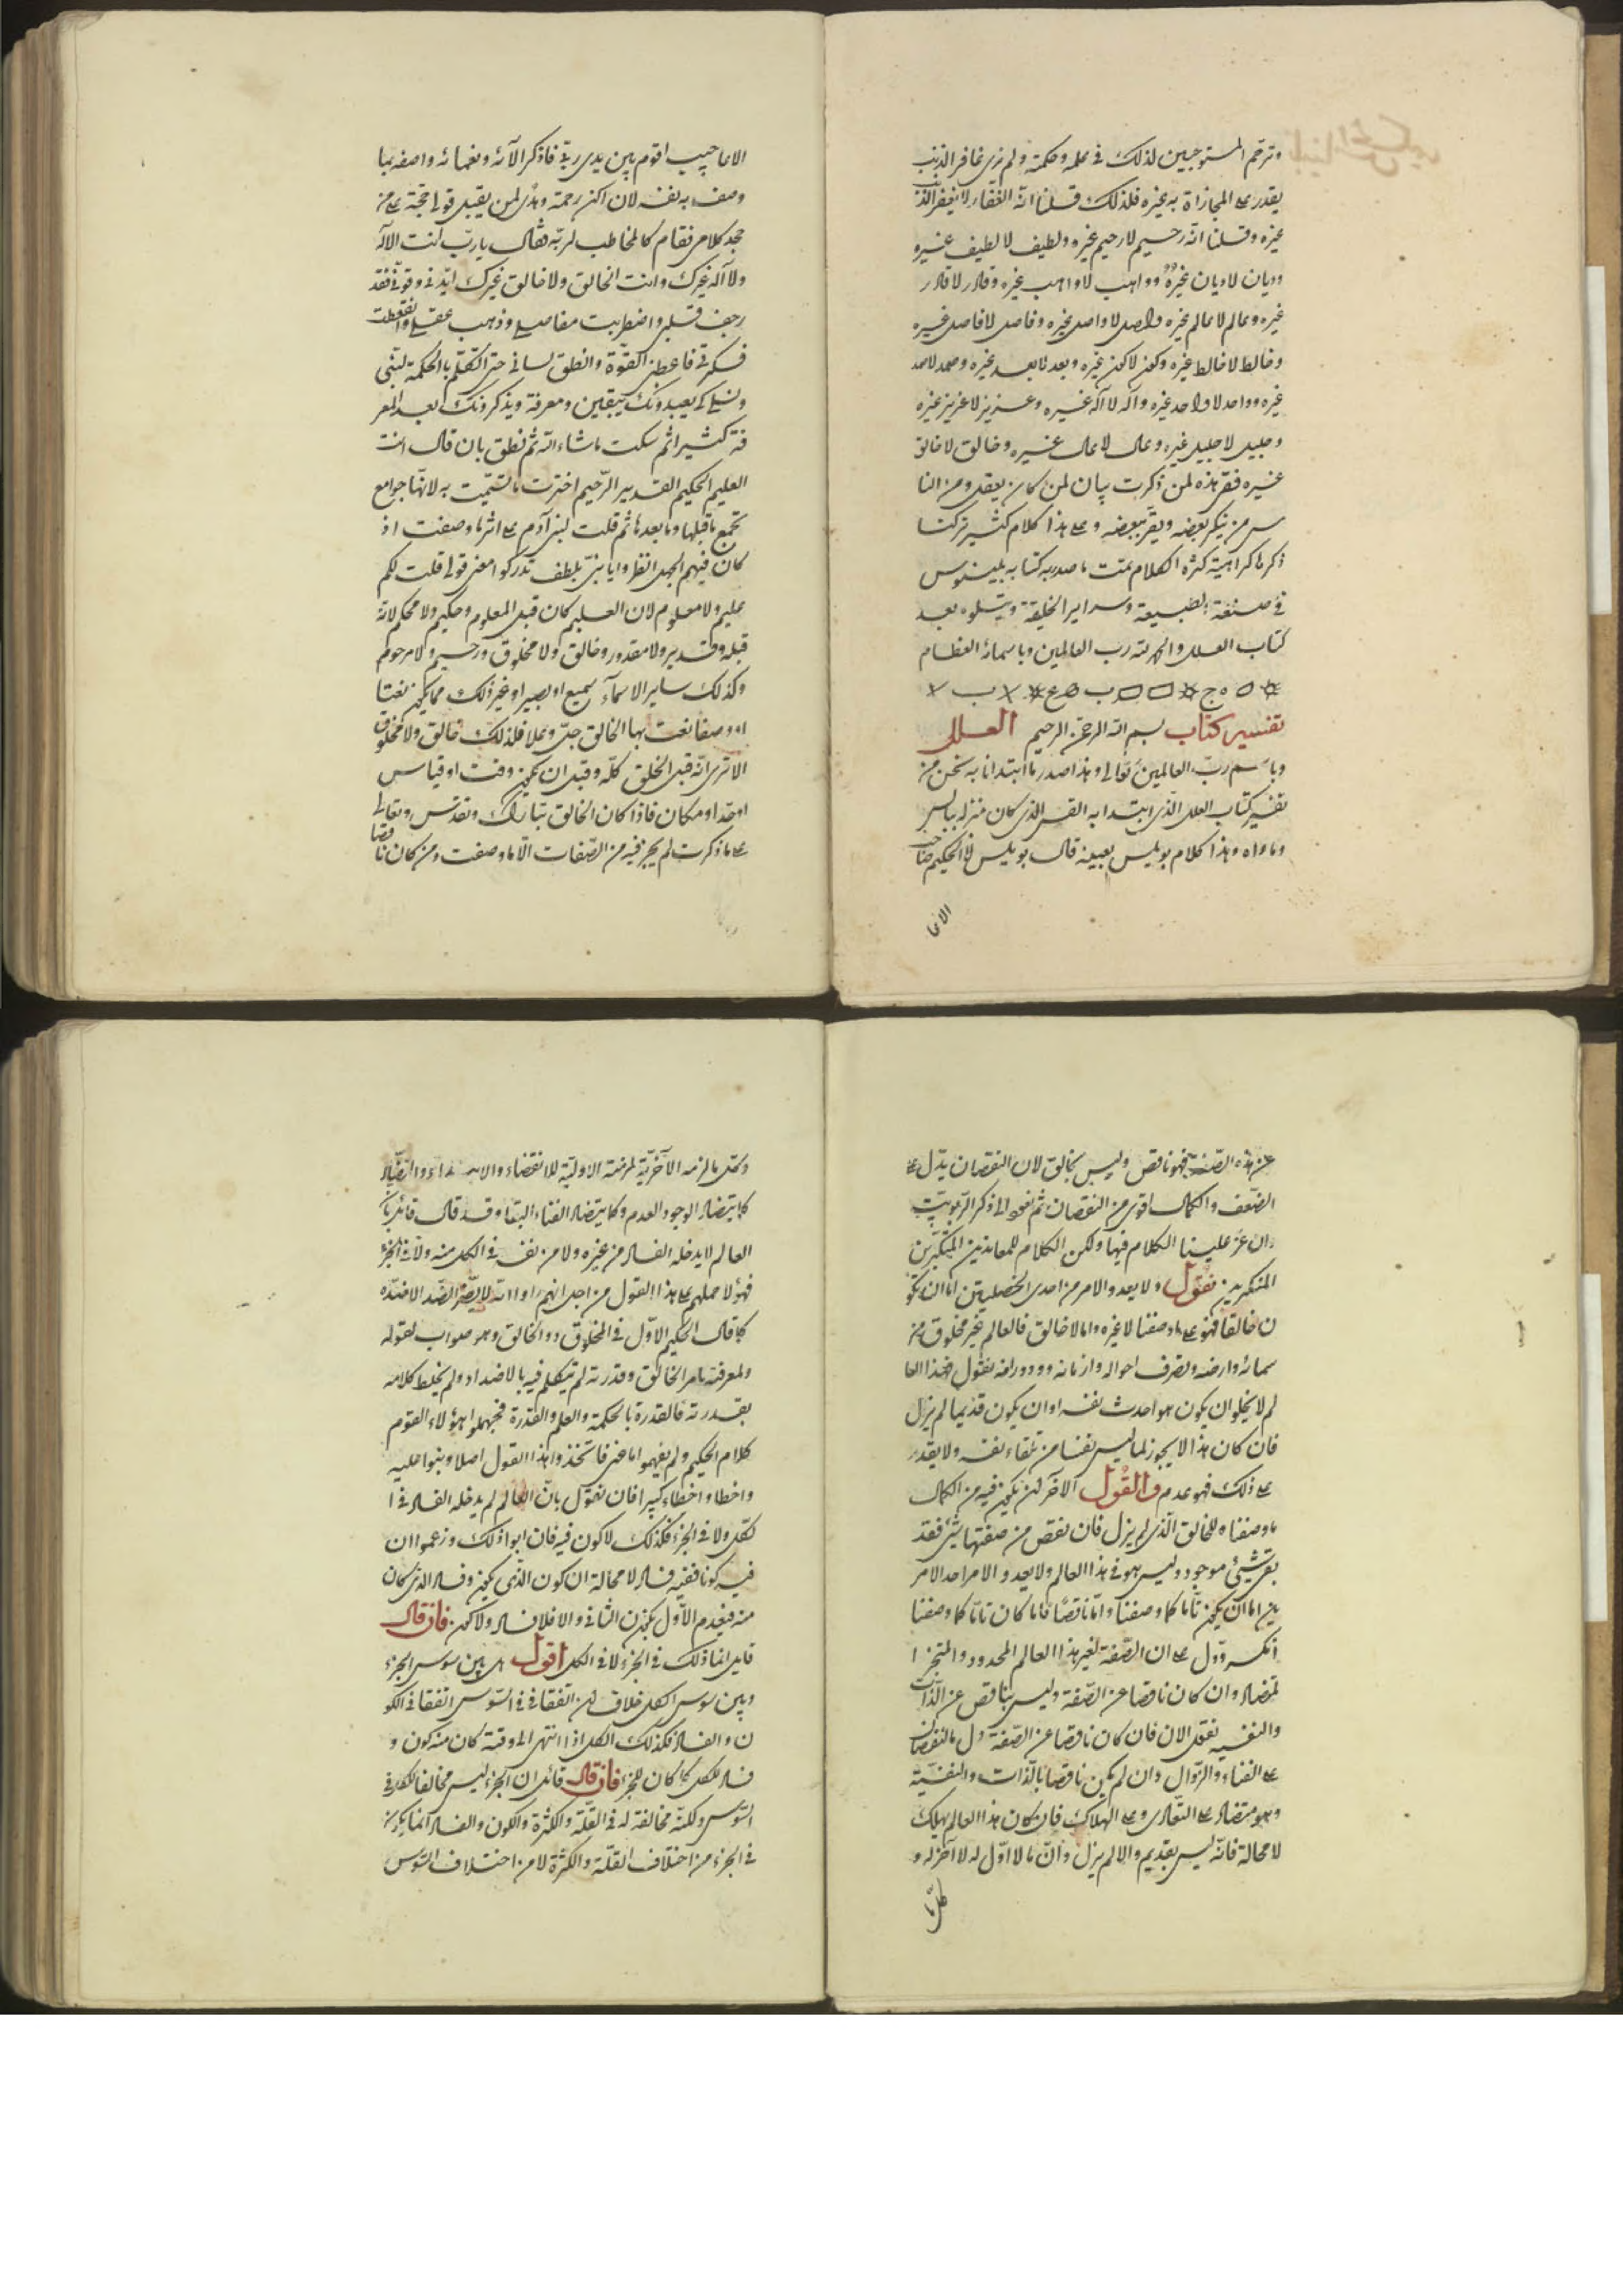 وترحّم المستوجبين لذلك في علمه وحكمته ولم نرى غافر الذنب
يقدر على المجازاة به غيره فلذلك قلنا انّه الغفار لا يغفر الذنب
غيره وقلنا انّه رحيم لا رحيم غيره ولطيف لا لطيف غيره
وديان لا ديان غيره وواهب لا واهب غيره وقادر لا قادر
غيره وعالم لا عالم غيره وواصل لا واصل غيره وفاصل لا فاصل غيره
وخالط لا خالط غيره
غيره وواحد لا واحد غيره واله لا اله غيره وعزيز لا عزيز غيره
وجليل لا جليل غيره وعال لا عال غيره وخالق لا خالق
غيره ففي هذه لمن ذكرت بيان لمن كان يعقل ومن النا
س من ينكر بعضه ويقرّ ببعضه وعلى هذا كلام كثير تركنا
ذكره كراهية كثرة الكلام تمت ما صدر به كتابه بلينوس
في صنعة الطبيعة وسراير الخليقة ويتلوه بعد
كتاب العلل والحمد لله رب العالمين وباسمائه العظام
تفسير كتاب بسم الله الرحمن الرحيم العلل
وباسم ربّ العالمين تعالى وهذا صدر ما ابتدانا به نحن من
تفسير كتاب العلل الّذي ابتدا به القس الذي كان منزله
وما واه وهذا كلام بويلس بعينه قال بويلس
الانما
وصف به نفسه لان اكن رحمة وهدى لمن يقبل قولي وحجّة على من
جحد كلامي فقام كالمخاطب لربّه فقال يا ربّ انت الاله
ولا اله غيرك وانت الخالق ولا خالق غيرك ايّدني وقوّني فقد
رجف قلبي واضطربت مفاصلي وذهب عقلي وانقطعت
فكرتي فاعطني القوّة وانطق لساني حتى اتكلّم بالحكمة لبنّي
يعبدونك بيقين ومعرفة ويذكرونك بعد المعر
فة كثيرا ثم سكت ما شاء الله ثم نطق بان قال انت
العليم الحكيم القدير الرّحيم اخترت ما تسمّيت به لانها جوامع
تجمع ما قبلها وما بعدها ثم قلت لبني آدم على اثر ما وصفت اذ
كان فيهم الجهل انظروا يا بنيّ بلطف تدركوا معنى قولي قلت لكم
عليم ولا معلوم لان العليم كان قبل المعلوم وحكيم ولا محكم لانه
قبله وقدير ولا مقدور وخالق ولا مخلوق ورحيم ولا مرحوم
وكذلك ساير الاسمآء سميع او بصير او غير ذلك مما يكون نعتا
او وصفا نعت بها الخالق جلّ وعلا فلذلك خالق ولا مخلوق
الا ترى انّه قبل الخلق كلّه وقبل ان يكون وقت او قياس
او حدّ او مكان فاذا كان الخالق تبارك وتقدّس وتعالى
على ما ذكرت لم يجز فيه من الصّفات الّا ما وصفت ومن كان ناقصا
عن هذه الصّفة فهو ناقص وليس بخالق لان النقصان يدّل على
الضعف والكمال اقوى من النقصان ثم نعود الى ذكر الرّبوبيّة
وان عزّ علينا الكلام فيها ولكن الكلام للمعاندين المتكبّرين
المنكرين نقول ولا يعدو الامر من احدى الخصلتين اما ان يكو
ن خالقا فهو على ما وصفنا لا غيره واما لا خالق فالعالم غير مخلوق من
سمائه وارضه وتصرف احواله وازمانه ودورانه نقول فهذا العا
لم لا يخلو ان يكون هو احدث نفسه او ان يكون قديما لم يزل
فان كان هذا لا يجوز لما ليس نفسا من تلقاء نفسه ولا يقدر
على ذلك فهو عدم والقول الآخر لن يكون فيه من الكمال
ما وصفناه للخالق الّذي لم يزل فان نقص من صفتها شئ فقد
بقى شئ موجود وليس هو في هذا العالم ولا يعدو الامر احد الامر
ين اما ان يكون تامّا كما وصفنا وامّا ناقصًا فاما كان تامّا كما وصفنا
انكسر ودّل على ان الصّفة لغير هذا العالم المحدود والمتجزا
المتضاد وان كان ناقصا عن الصّفة وليس بناقص عن الذّات
والنفسيه نعقل الان فان كان ناقصا عن الصّفة دل بالنقصان
على الفناء والزّوال وان لم يكن ناقصا بالذّات والنفسيّة
وهو متضاد على التعادى وعلى الهلاك فان كان هذا العالم يهلك
لا محالة فانّه ليس بقديم والا لم يزل وانّ ما لا اوّل له لا آخر له و
وكل ما لزمه الآخريّة لزمته الاوليّة للانقضاء والابتداء والتضّاد
كما يتضاد الوجود العدم وكما يتضاد الفناء البقاء وقد قال قائل بانّ
العالم لا يدخله الفساد من غيره ولا من نفسه في الكل منه ولا في الجزء
فهؤلاء حملهم على هذا القول من اجل انهم راوا انّه لا يضّر الضّد الا ضدّه
كما قال الحكيم الاوّل في المخلوق دون الخالق وهو صواب لقوله
ولمعرفته بامر الخالق وقدرته لم يتكلم فيه بالاضداد ولم يخلط كلامه
بقدرته فالقدرة بالحكمة والعلم والقدرة فجهلوا هؤلاء القوم
كلام الحكيم ولم يفهموا ما عنى فاتخذوا هذا القول اصلا وبنوا عليه
واخطاوا خطاء كبيرا فان نقول بانّ العالم لم يدخله الفساد في ا
لكل ولا في الجزء فكذلك لا كون فيه فان ابوا ذلك وزعموا ان
فيه كونا ففيه فساد لا محالة ان كون الّذي يكون وفساد الذي كان
منه فيعدم الاوّل بكون الثاني والا فلا فساد ولا كون فان قال
قايل انما ذلك في الجزء لا في الكل اقول هل بين سوس الجزء
وبين سوس الكل خلاف لئن اتفقا في السّوس اتفقا في الكو
ن والفساد فكذلك الكل اذا انتهى الى وقته كان منه كون و
فساد للكل كما كان للجزء فان قال قائل ان الجزء ليس مخالفا للكل في
السّوس ولكنّه مخالفة له في القلّة والكثرة والكون والفساد انّما يكون
في الجزء من اختلاف القلّة والكثرة لا من اختلاف السّوس